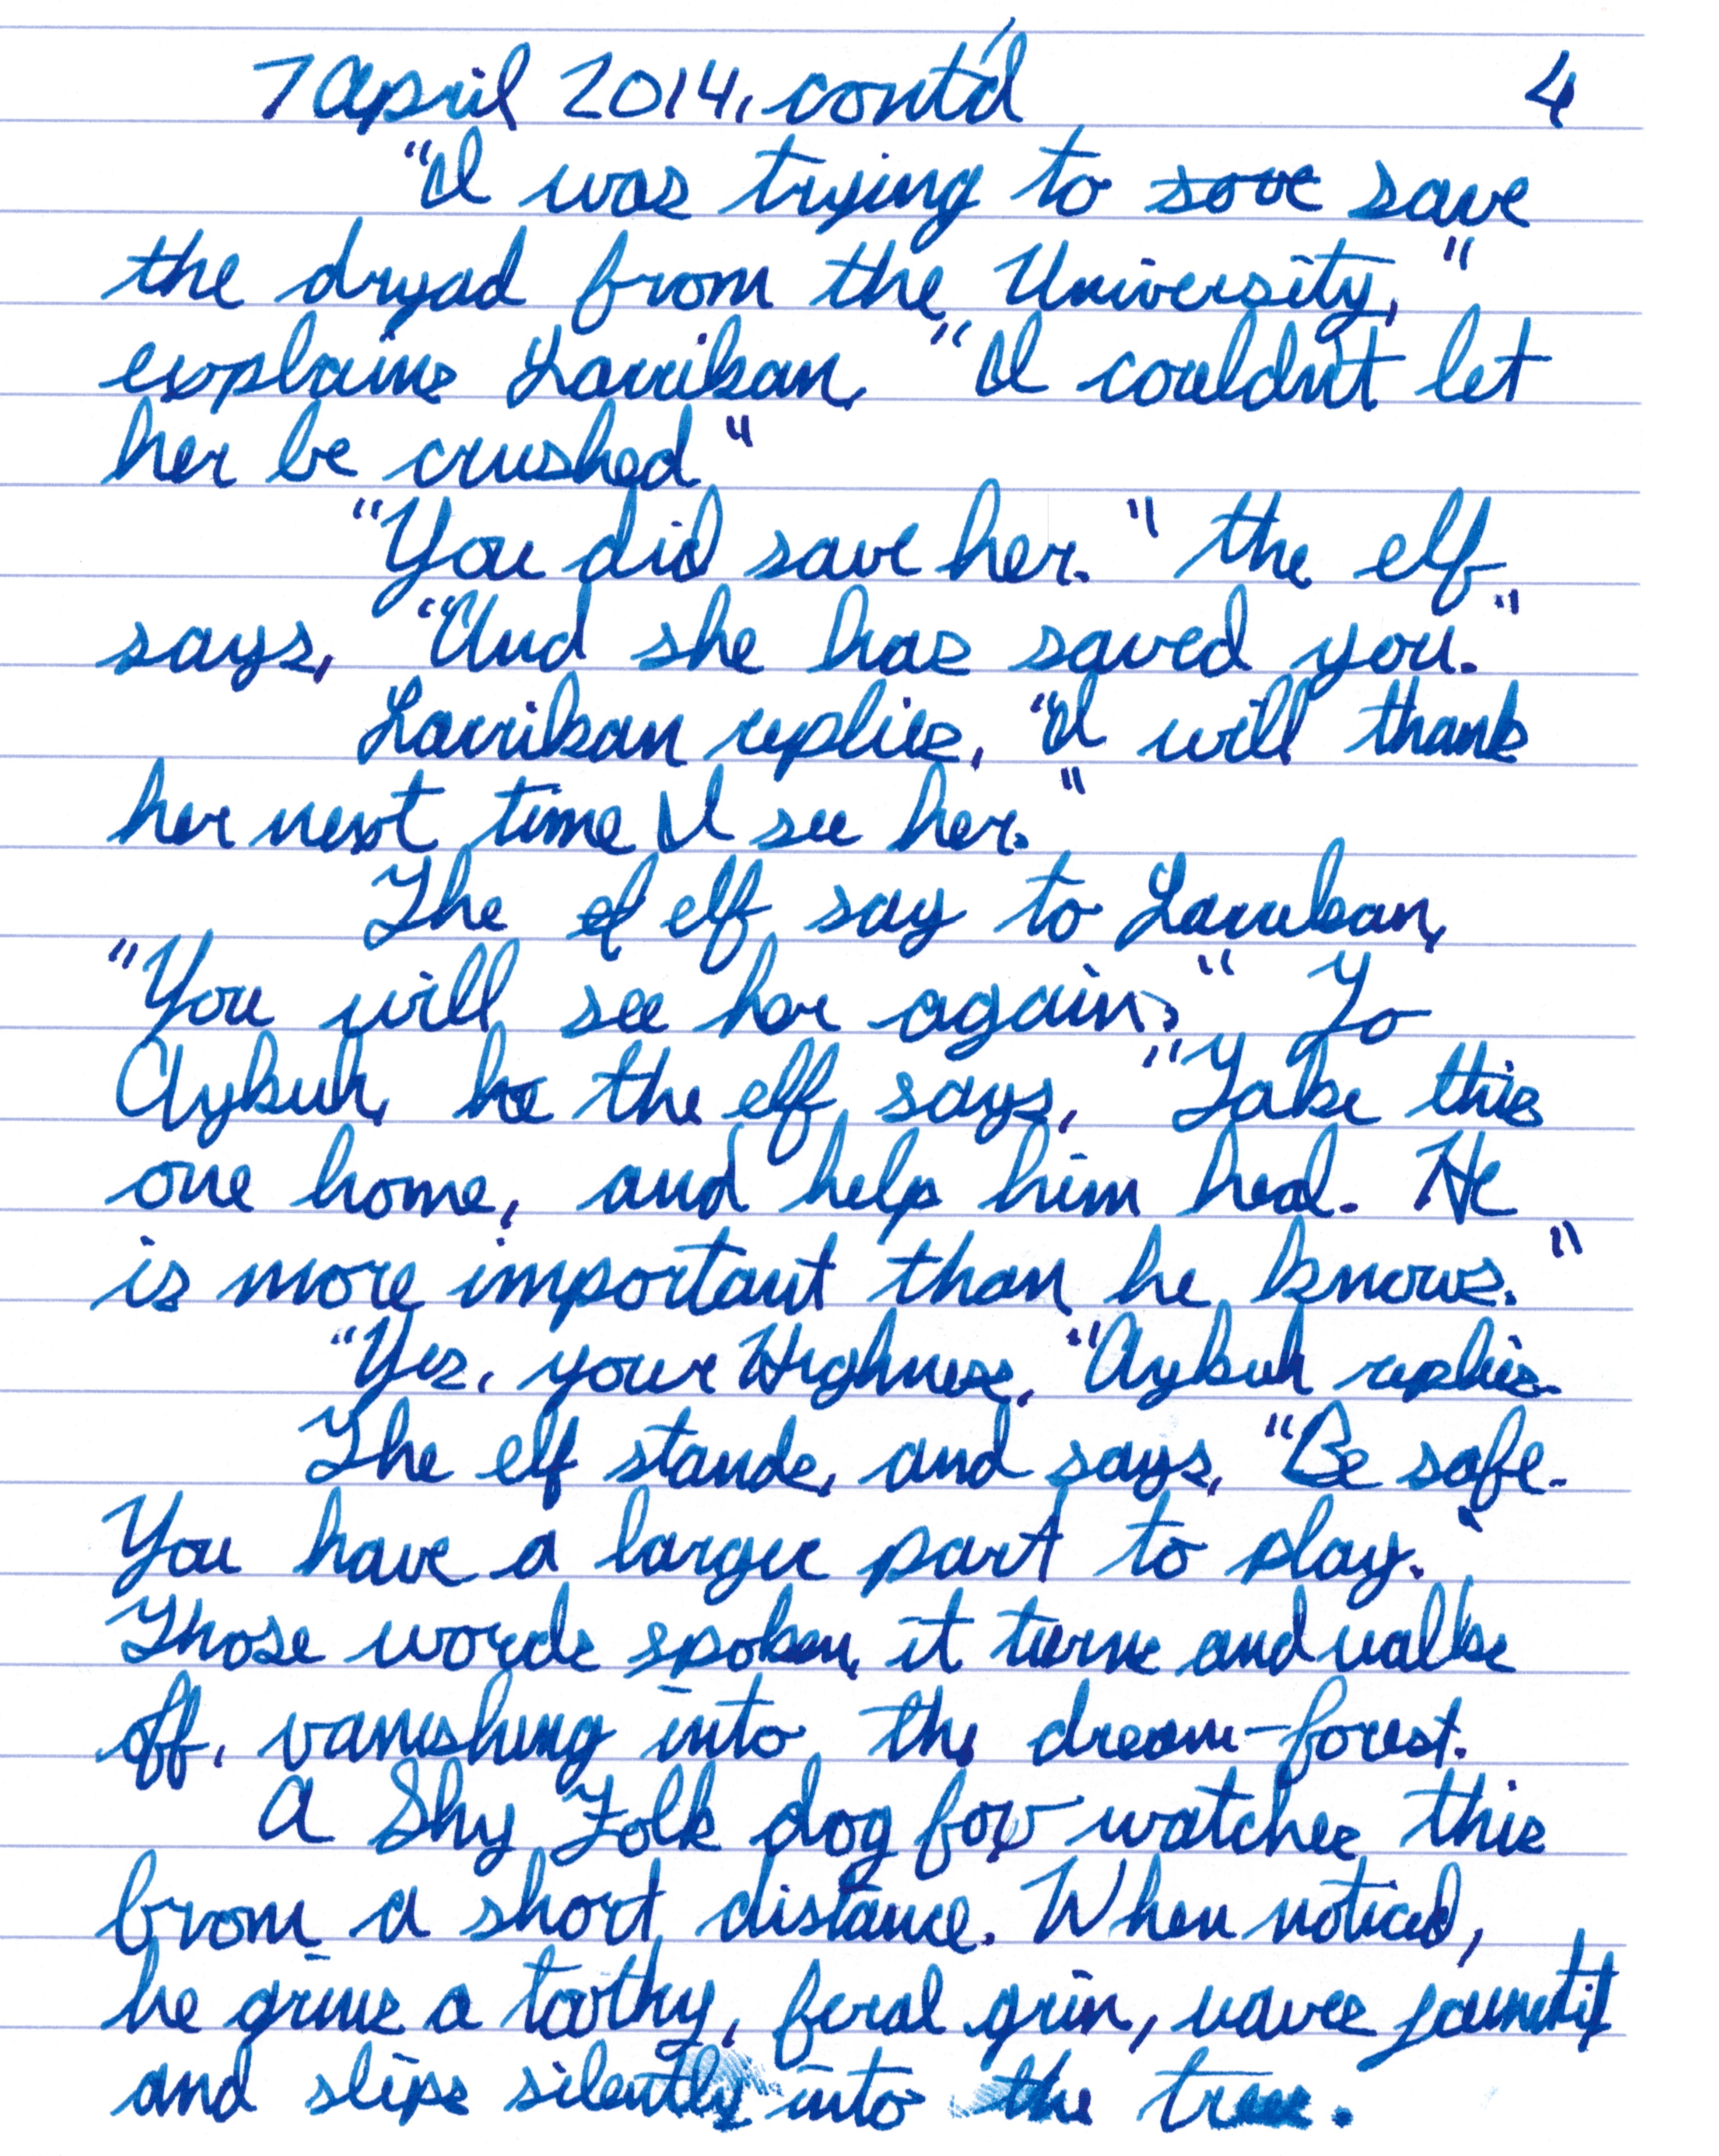 7 April 2014, cont'd 4
"I was trying to sove save
the dryad from the University,"
explains Larrikan, "I couldn't let
her be crushed."
"You did save her." the elf
says, "And she has saved you."
Larrikan replies, "I will thank
her next time I see her."
The ef elf say to Larrikan,
"You will see her again." To
Aybuh, he the elf says, "Take this
one home, and help him heal. He
is more important than he knows."
"Yes, your Highness," Aybuh replies.
The elf stands, and says, "Be safe.
You have a larger part to play."
Those words spoken, it turns and walks
off, vanishing into the dream-forest.
A Shy Folk dog fox watches this
from a short distance. When noticed,
he grins a toothy, feral grin, waves jauntily
and slips silently into the trees.